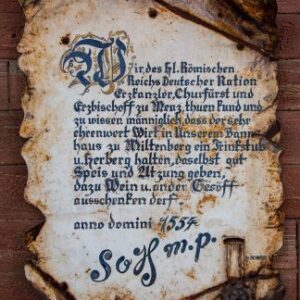 Wir des hl. Römischen
Reichs Deutscher Nation
Erzkanzler, Churfürst und
Erzbischoff zu Menz, thuen kund und
zu wissen männiglich, dass der sehr
ehrenwert Wirt in Unserem Bann-
haus zu Miltenberg ein Trinkstub
u. Herberg halten, daselbst gut
Speis und Atzung geben,
dazu Wein u. ander Gesöff
ausschenken derf.
anno domini 1554
m.p.